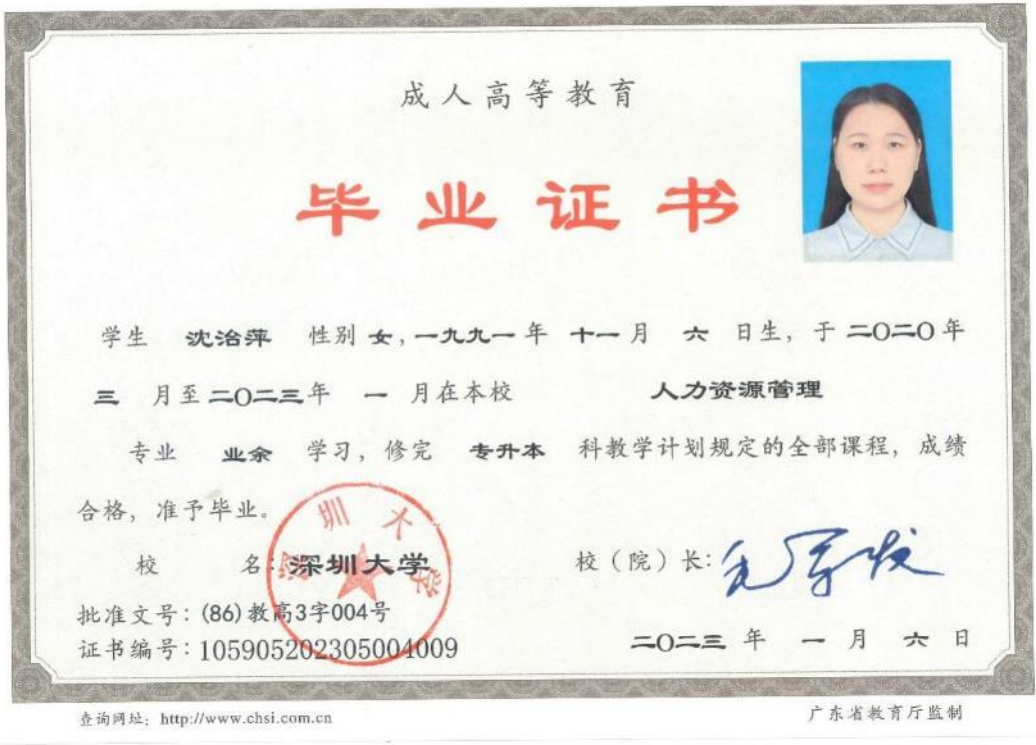 成人高等教育
毕业证书
学生 沈治萍 性别 女，一九九一 年 十一 月 六 日生，于 二〇二〇 年
三 月至 二〇二三 年 一 月在本校 人力资源管理
专业 业余 学习，修完 专升本 科教学计划规定的全部课程，成绩
合格，准予毕业。
深圳大学
校 名：深圳大学 校（院）长：毛军发
批准文号：(86)教高3字004号
证书编号：105905202305004009
二〇二三 年 一 月 六 日
查询网址：http://www.chsi.com.cn 广东省教育厅监制